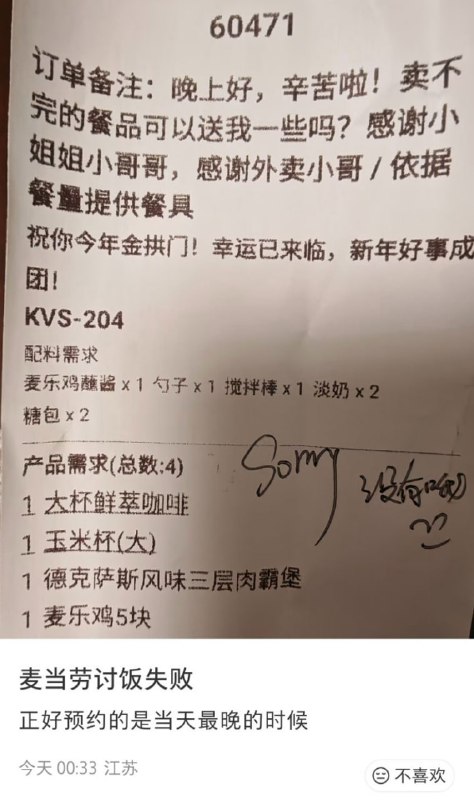 60471
订单备注：晚上好，辛苦啦！卖不
完的餐品可以送我一些吗？感谢小
姐姐小哥哥，感谢外卖小哥 / 依据
餐量提供餐具
祝你今年金拱门！幸运已来临，新年好事成
团！
KVS-204
配料需求
麦乐鸡蘸酱 x 1 勺子 x 1 搅拌棒 x 1 淡奶 x 2
糖包 x 2
产品需求(总数:4)
Sorry 没有哦
1 大杯鲜萃咖啡
1 玉米杯(大)
1 德克萨斯风味三层肉霸堡
1 麦乐鸡5块
麦当劳讨饭失败
正好预约的是当天最晚的时候
今天 00:33 江苏
不喜欢